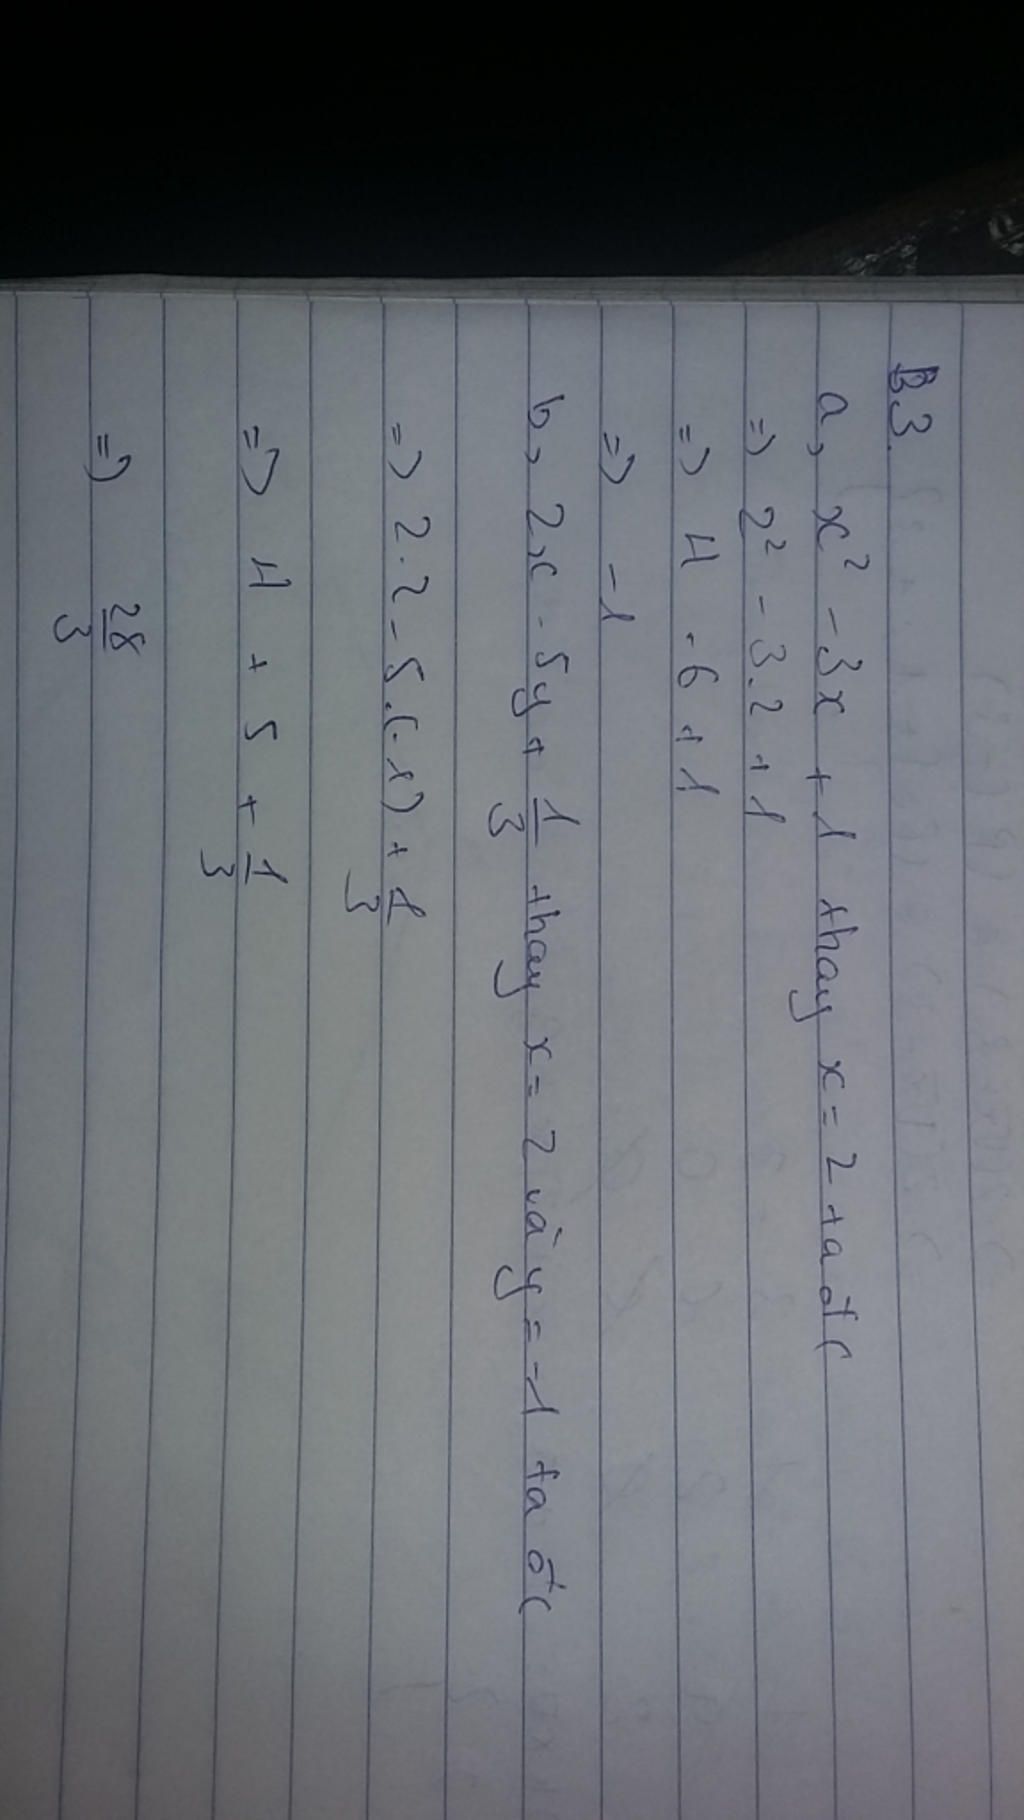 B3.
a, x² - 3x + 1 thay x = 2 ta đc
=> 2² - 3.2 + 1
=> 4 - 6 + 1
=> -1
b, 2x - 5y + 1/3 thay x = 2 và y = -1 ta đc
=> 2.2 - 5.(-1) + 1/3
=> 4 + 5 + 1/3
=> 28/3